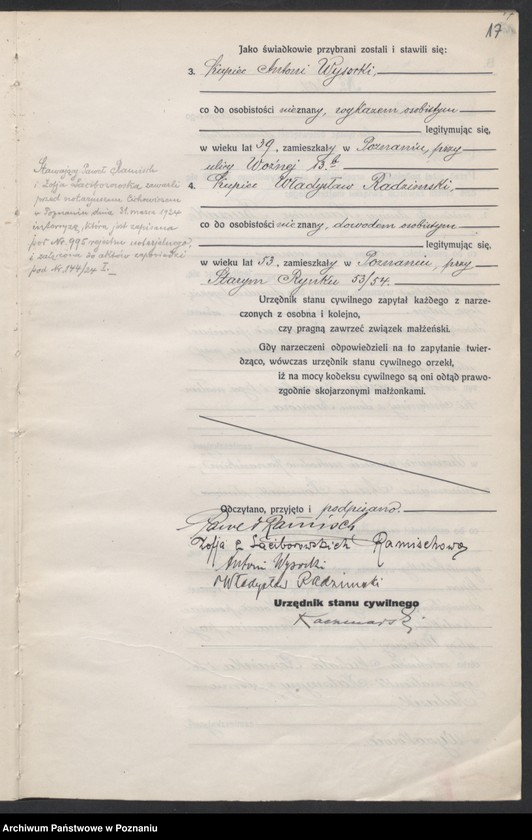 17
Jako świadkowie przybrani zostali i stawili się:
3. Kupiec Antoni Wysocki,
co do osobistości nieznany, wykazem osobistym
legitymując się,
w wieku lat 39, zamieszkały w Poznaniu, przy
ulicy Woźnej 13b
4. Kupiec Władysław Radzimski,
co do osobistości nieznany, dowodem osobistym
legitymując się,
w wieku lat 53, zamieszkały w Poznaniu, przy
Starym Rynku 53/54.
Stawający Paweł Ramisch
i Zofja Raciborowska zawarli
przed notarjuszem
w Poznaniu dnia 31. marca 1924
intercyzę, która, jak zapisana
pod Nr. 995 rejestru notarjalnego,
i załączona do aktów zapowiedzi
pod Nr. 144/24 L.
Urzędnik stanu cywilnego zapytał każdego z narze-
czonych z osobna i kolejno,
czy pragną zawrzeć związek małżeński.
Gdy narzeczeni odpowiedzieli na to zapytanie twier-
dząco, wówczas urzędnik stanu cywilnego orzekł,
iż na mocy kodeksu cywilnego są oni odtąd prawo-
zgodnie skojarzonymi małżonkami.
Odczytano, przyjęto i podpisano.
Paweł Ramisch
Zofja z Raciborowskich Ramischowa
Antoni Wysocki
Władysław Radzimski
Urzędnik stanu cywilnego
Kaczmarski
Archiwum Państwowe w Poznaniu